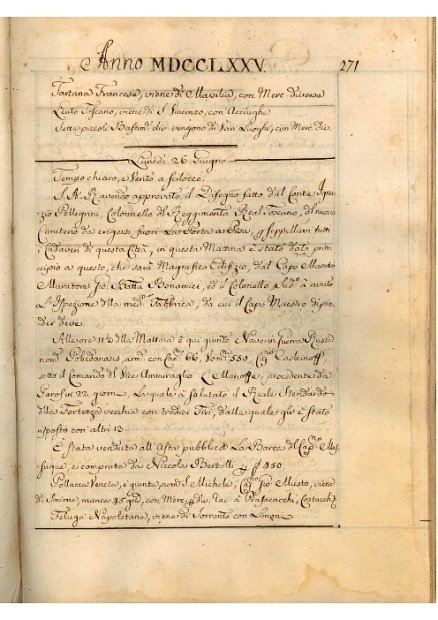 Anno MDCCLXXV. 271
Tartana Francese, viene di Marsilia, con Merc. diverse
Liuto Toscano, viene di S. Vincenzo, con Acciughe
Sette piccoli Bastim.ti che vengono di Vari Luoghi, con Merc. div.
Lunedì 26 Giugno
Tempo chiaro, e Vento a Scilocco.
S. A. R. avendo approvato il Disegno fatto dal Conte Igna-
zio Pellegrini, Colonnello del Reggimento Real Toscano, del nuovo
Cimiterio da erigersi fuori La Porta a Pisa, p seppellirvi tutti
i Cadaveri di questa Città, in questa Mattina è stato dato prin-
cipio a questo, che sarà Magnifico Edifizio, dal Capo Maestro
Muratore Gio. Batta Bonamici, ed il Colonello sud.o à avuto
L'Ispezione della med.ma Fabbrica, da cui il Capo Maestro dipen-
der deve.
Alle ore 11½ della Mattina è qui giunto Nave in Guerra Russa
nom. armo con Can. 66, Uom. 550, Cap.
sotto il Comando del Vice Ammiraglio procedente da
Paros in 22 giorni, La quale à salutato il Reale Stendardo
della Fortezza vecchia con tredici Tiri, dalla quale gl'è stato
risposto con altri 12
È stata venduta all'Asta pubblica La Barca del Cap.
e comprata da Niccola Bertelli p 450
Pollacca Veneta, è giunta, nom. S. Michele, Cap. Gio. Musto, viene
di Smirne, manca 45 giorni, con Merc. div. rac. a
Feluga Napoletana, viene di Sorrento con Limoni